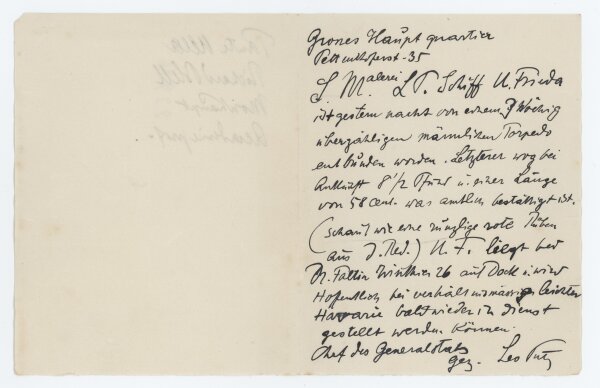 Grosses Hauptquartier
Pettenkoferst. 35
S. M. Malerei L. P. Schiff U. Frieda
ist gestern nacht von einem
überzähligen männlichen Torpedo
entbunden worden. Letzterer wog bei
Ankunft 8 1/2 Pfund u. einer Länge
von 58 Cent. was amtlich bestättigt ist.
(schaut wie eine runzlige rote Rüben
aus d. Red.) U. F. liegt bei
Dr. 26 auf Dock u. wird
Hoffentlich bei verhältnismässig leichter
Havarie bald wieder in dienst
gestellt werden können.
Chef des Generalstabs
gez. Leo Putz